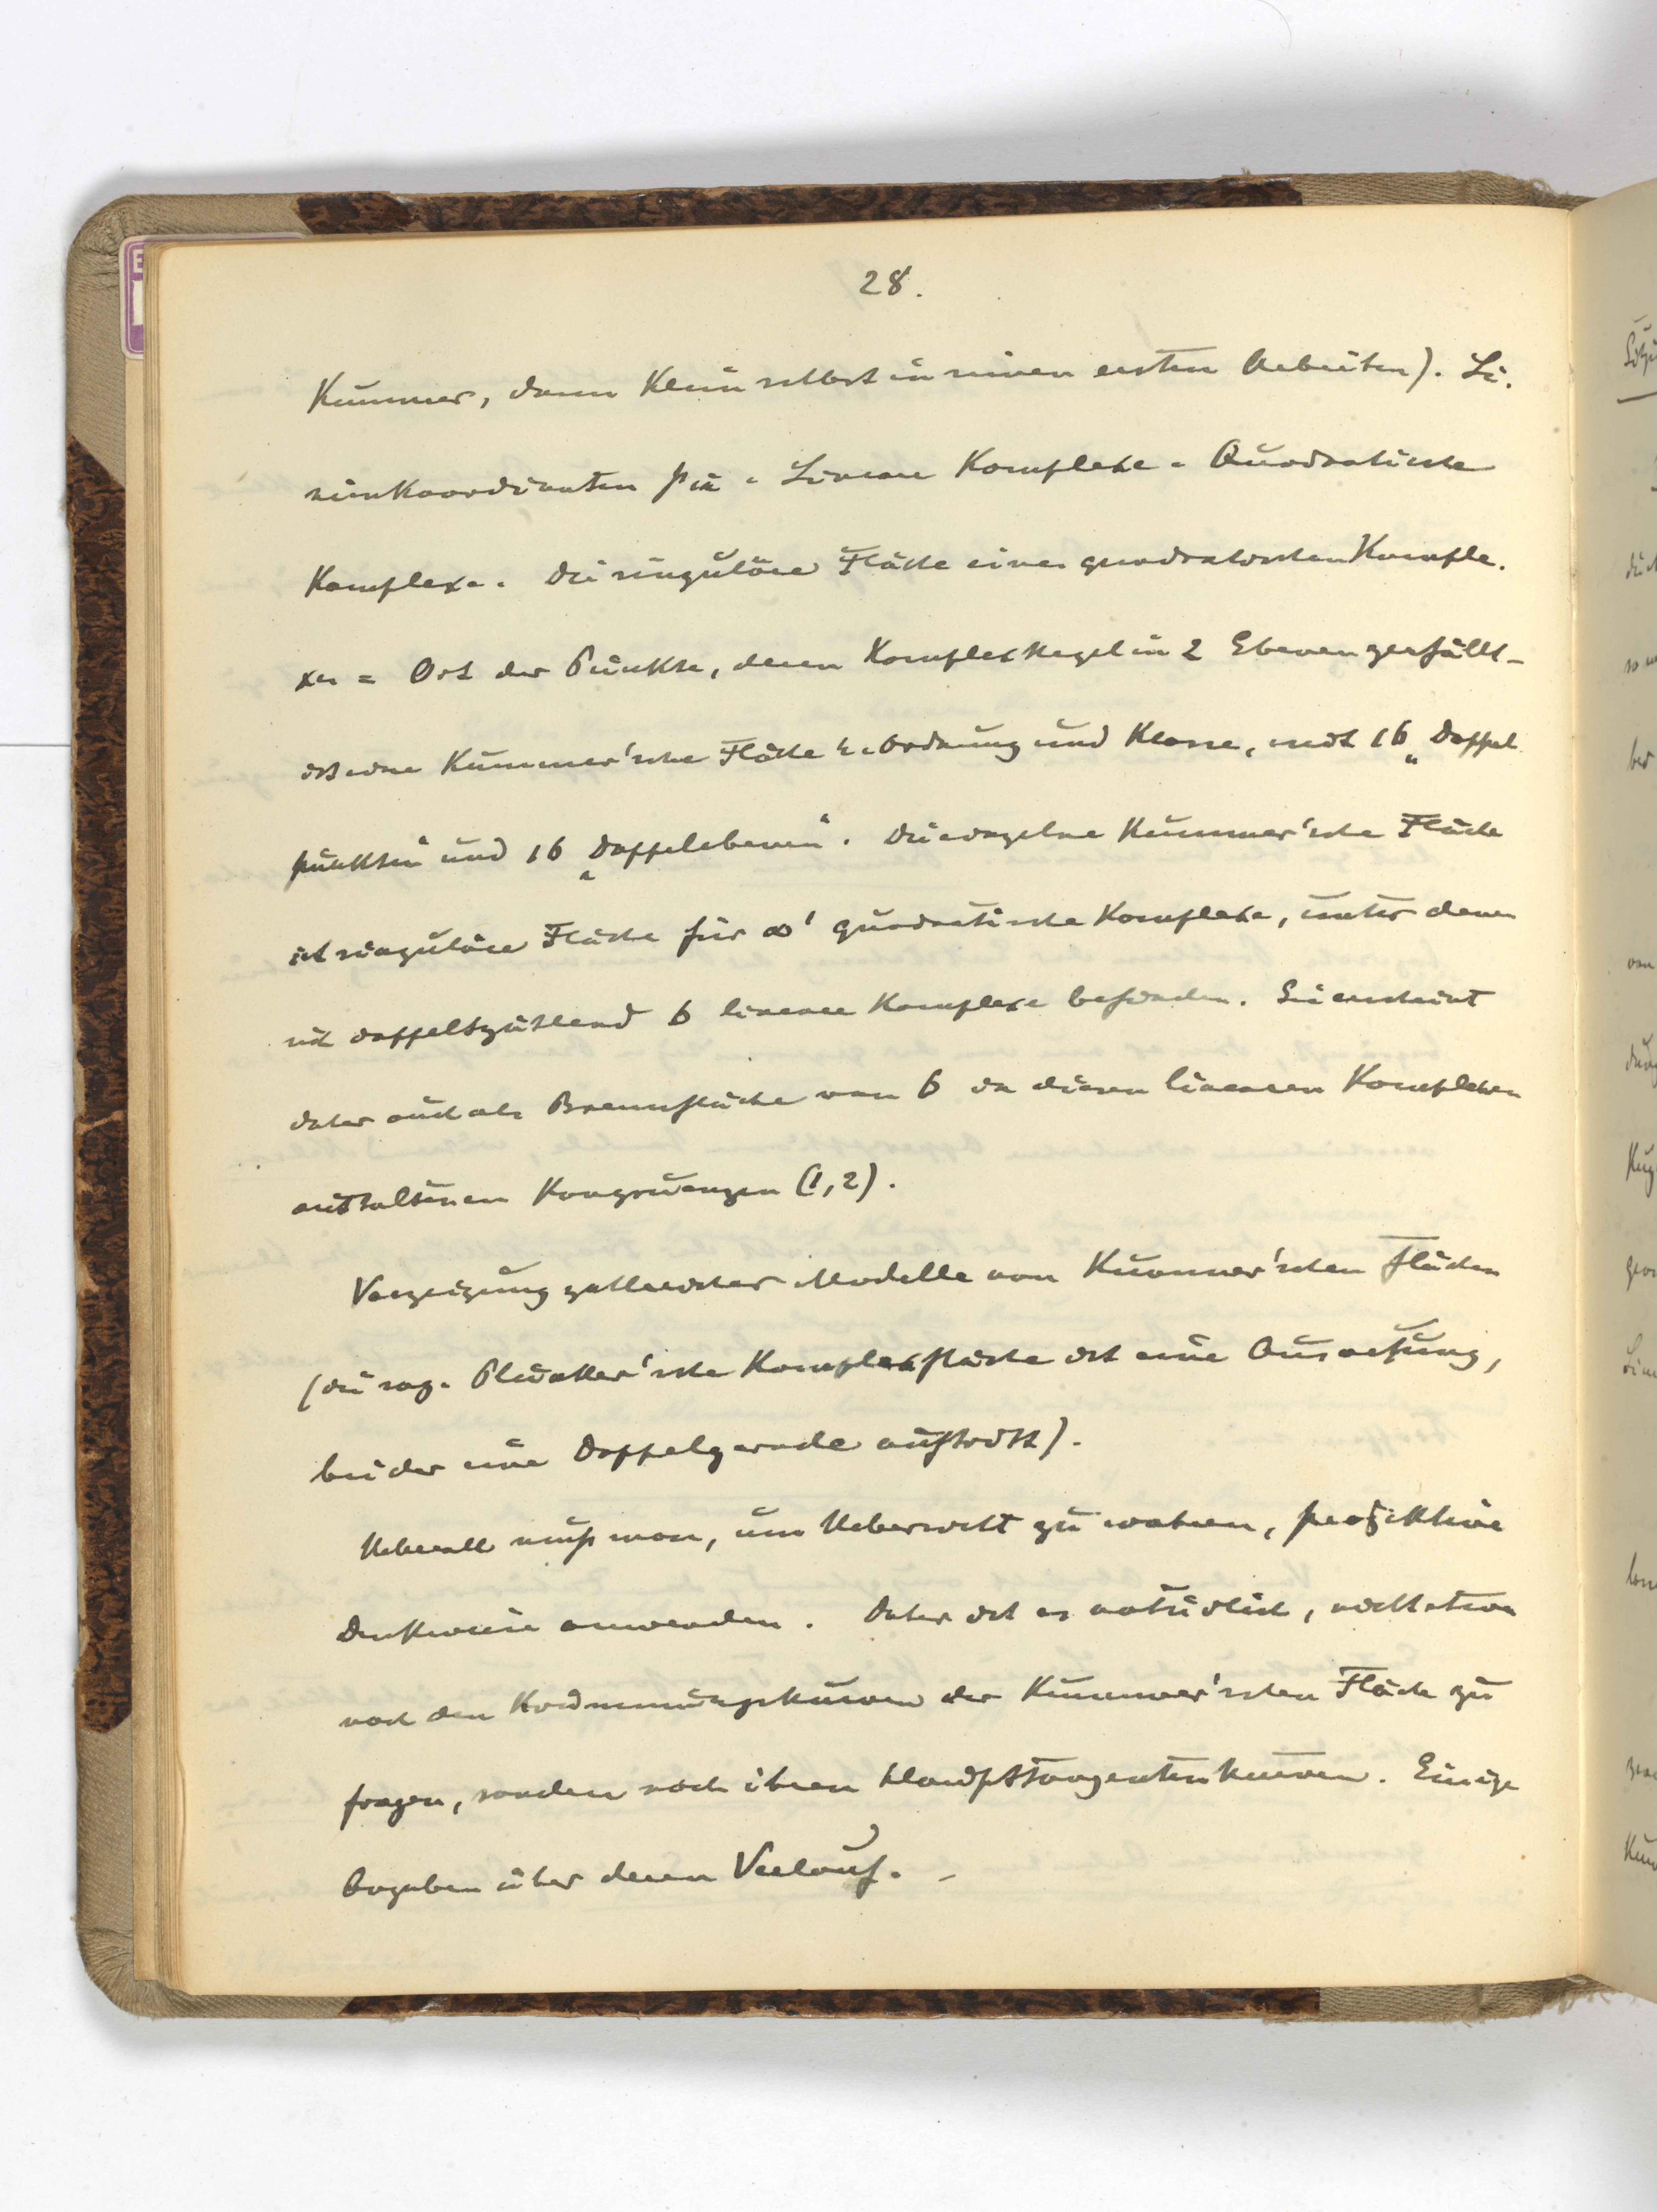 28.
Kummer, dann Klein selbst in seinen ersten Arbeiten). Li-
nienkoordinaten pik. Lineare Komplexe. Quadratische
Komplexe. Die singuläre Fläche eines quadratischen Komple-
xes = Ort der Punkte, deren Komplexkegel in 2 Ebenen zerfällt –
ist eine Kummer'sche Fläche 4. Ordnung und Klasse, mit 16 „Doppel-
punkten“ und 16 „Doppelebenen“. Die einzelne Kummer'sche Fläche
ist singuläre Fläche für ∞¹ quadratische Komplexe, unter denen
sich doppeltzählend 6 lineare Komplexe befinden. Sie erscheint
daher auch als Brennfläche von 6 in diesen linearen Komplexen
enthaltenen Kongruenzen (1,2).
Vorzeigung zahlreicher Modelle von Kummer'schen Flächen
(die sog. Plücker'sche Komplexfläche ist eine Ausartung,
bei der eine Doppelgerade auftritt).
Ueberall muß man, um Uebersicht zu wahren, projektive
Denkweise anwenden. Daher ist es natürlich, nicht etwa
nach den Krümmungskurven der Kummer'schen Fläche zu
fragen, sondern nach ihren Haupttangentenkurven. Einige
Angaben über deren Verlauf. –